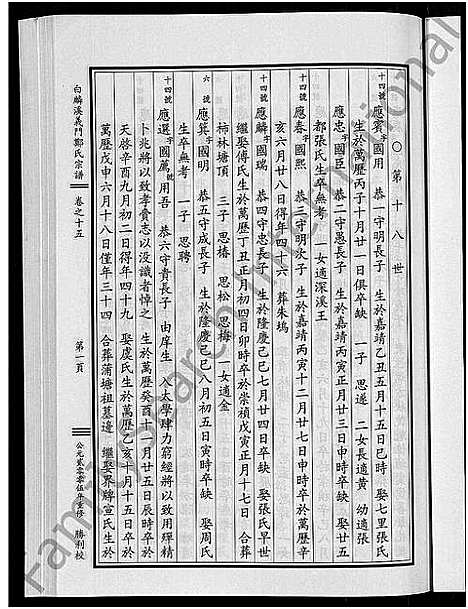 ○ 第十八世
十四號 應賓 字國用 恭一守明長子 生於嘉靖乙丑五月十五日巳時 娶七里張氏
生於萬曆丙子十月廿一日俱卒缺 一子 思遜 二女長適黃 幼適張
應忠 字國臣 恭二守愚長子 生於嘉靖丙寅正月廿三日申時卒缺 娶廿五
都張氏生卒無考 一女適深溪王
十四號 應春 字國熙 恭三守明次子 生於嘉靖丙寅十二月廿七日申時卒於萬曆辛
亥六月廿八日得年四十六 葬朱塢
十四號 應麟 字國瑞 恭四守忠長子 生於隆慶己巳七月廿四日卒缺 娶張氏早世
繼娶傅氏生於萬曆丁丑正月初四日卯時卒於崇禎戊寅正月十七日 合葬
柿林塘頂 三子 思椿 思松 思梅 一女適金
六號 應箕 字國明 恭五守成長子 生於隆慶己巳八月初五日寅時卒缺 娶周氏
生卒無考 一子 思聘
十四號 應選 字國薦 號用吾 恭六守貴長子 由庠生 入太學肆力窮經將以致用殫精
卜兆將以致孝賫志以沒識者悼之 生於萬曆癸酉十一月廿五日辰時卒於
天啟辛酉九月初二日得年四十九 娶虞氏生於萬曆乙亥十月十五日卒於
萬曆戊申六月十八日僅年三十四 合葬蒲塘祖墓邊 繼娶界牌宣氏生於
白麟溪義門鄭氏宗譜 卷之十五 第一頁 公元貳零零伍年重修 勝利校